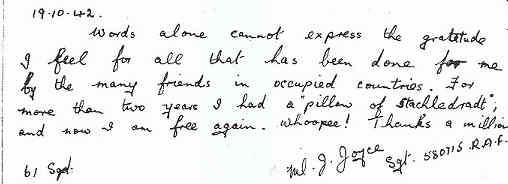 19-10-42.
Words alone cannot express the gratitude
I feel for all that has been done for me
by the many friends in occupied countries. For
more than two years I had a "pillow of stachledradt",
and now I am free again. Whoopee! Thanks a million
61 Sqd. M. J. Joyce Sgt. 580715. R.A.F.